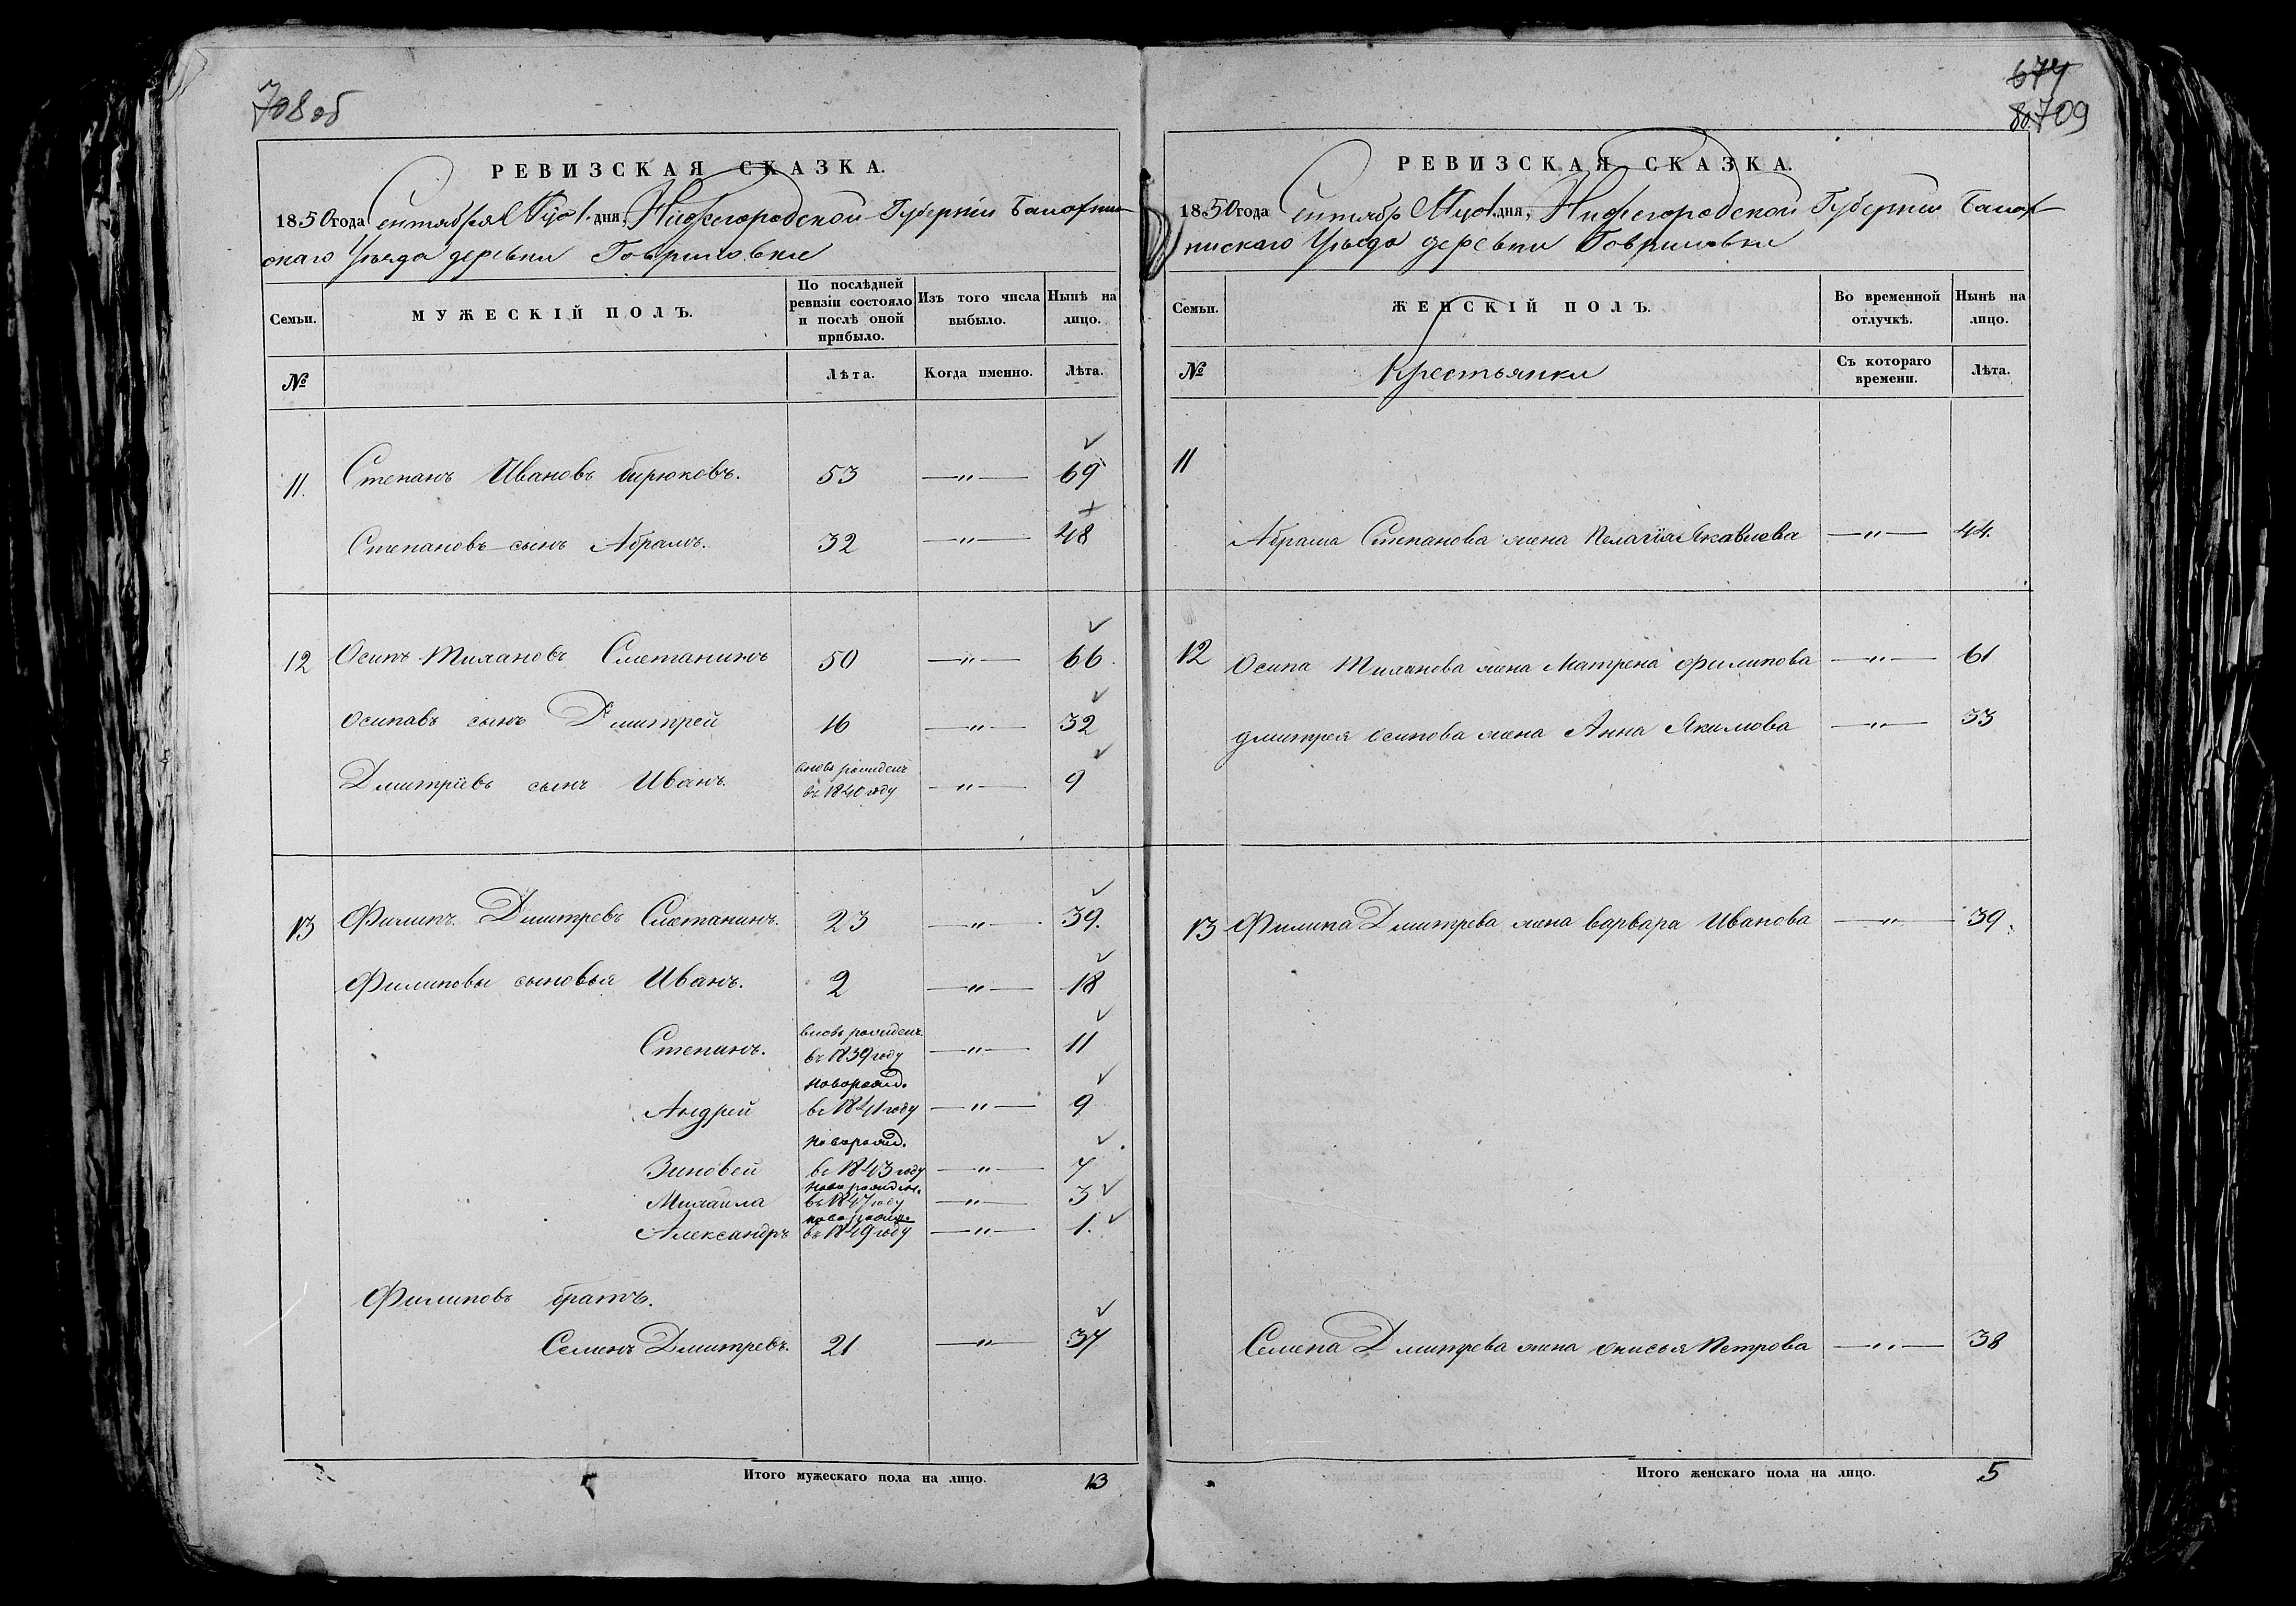 708 об
РЕВИЗСКАЯ СКАЗКА.
1850 года Сентября дня, Нижегородской Губернии Балахнин
скаго Уезда деревни Гавриловки
Семьи.
МУЖЕСКІЙ ПОЛЪ.
По послѣдней ревизіи состояло и послѣ оной прибыло.
Изъ того числа выбыло.
Нынѣ на лицо.
№
Лѣта.
Когда именно.
Лѣта.
11. Степанъ Ивановъ Бирюковъ. 53 —"— 69
Степановъ сынъ Абрамъ. 32 —"— 48
12 Осипъ Сметанинъ 50 —"— 66.
Осиповъ сынъ Дмитрей 16 —"— 32
Дмитріевъ сынъ Иванъ. вновь рожденъ въ 1840 году —"— 9
13 Филипъ Дмитревъ Сметанинъ. 23 —"— 39.
Филиповы сыновья Иванъ. 2 —"— 18
Степанъ. вновь рожденъ въ 1839 году —"— 11
Андрей новорожд. въ 1841 году —"— 9
Зиновей новорожд. въ 1843 году —"— 7
Михаила новорожден. въ 1847 году —"— 3
Александръ новорожд. въ 1849 году —"— 1.
Филиповъ братъ.
Семенъ Дмитревъ. 21 —"— 37
Итого мужескаго пола на лицо. 13
674
709
РЕВИЗСКАЯ СКАЗКА.
1850 года Сентябр дня, Нижегородской Губернии Балах
нискаго Уезда деревни Гавриловки
Семьи.
ЖЕНСКІЙ ПОЛЪ.
Во временной отлучкѣ.
Нынѣ на лицо.
№
Крестьянки
Съ котораго времени.
Лѣта.
11
Абрама Степанова жена Пелагія Якавлева —"— 44.
12 Осипа жена Матрена Филипова —"— 61
Дмитрея Осипова жена Анна Якимова —"— 33
13 Филипа Дмитрева жена Варвара Иванова —"— 39.
Семена Дмитрева жена Онисья Петрова —"— 38
Итого женскаго пола на лицо. 5